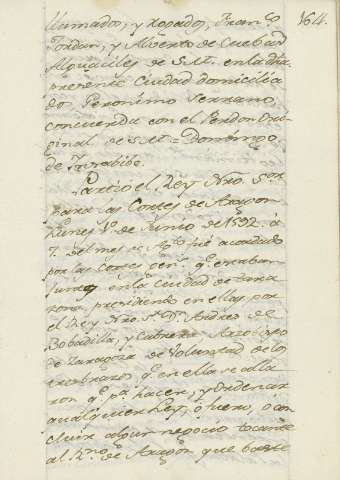 164.
llamados, y rogados, Fran.co
Jordan, y Alberto de
Alguaciles de S.M. en la dha
presente Ciudad domicilia
dos. Geronimo Serrano
concuerda con el Perdon Ori
ginal de S.M. = Domingo
de
Partió el Rey Nro. S.or
para las Cortes de Aragon
Lunes 1.o de Junio de 1592. á
7. del mes de Ag.to fué acordado
por las Cortes gen.s q.e estaban
juntas en la ciudad de Tara
zona, presidiendo en ellas por
el Rey Nro. S.r D.n Andres de
Bobadilla, y Cabrera Arzobispo
de Zaragoza de Voluntad de los
brazos q.e en ella se alla
ron q.e p.a hacer, y Ordenar
qualquier Ley, ó fuero, ó con
cluir algun negocio tocante
al R.no de Aragon que baste